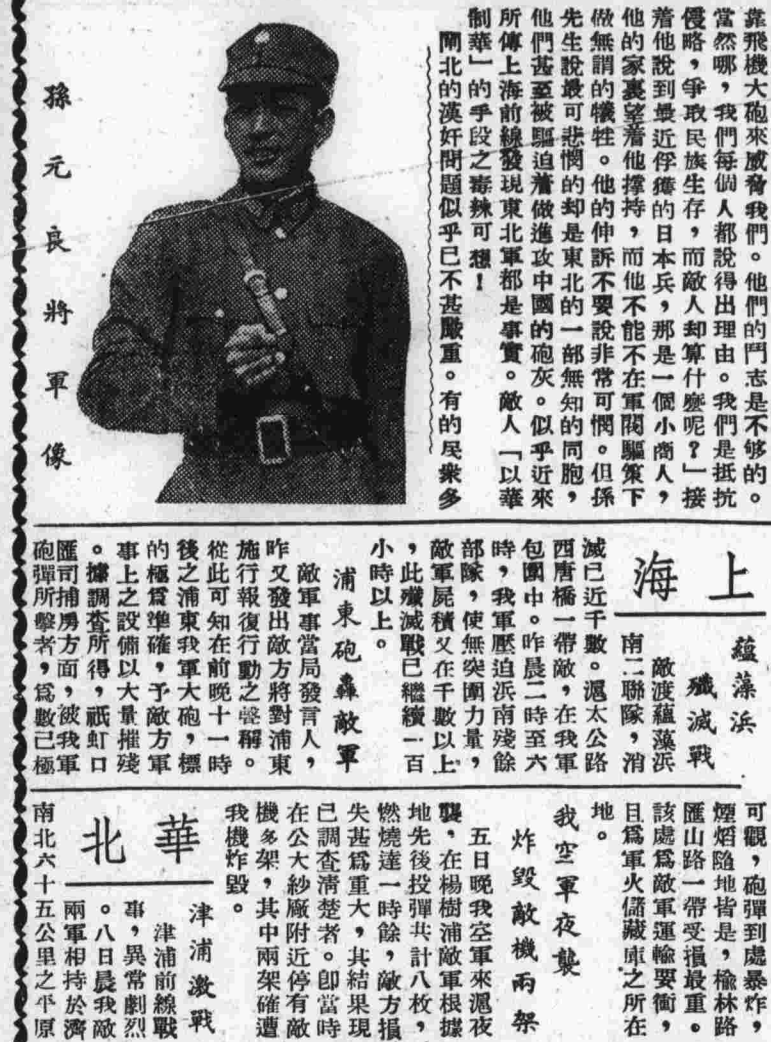 靠飛機大砲來威脅我們。他們的鬥志是不够的。
當然哪，我們每個人都說得出理由。我們是抵抗
侵略，爭取民族生存，而敵人却算什麼呢？」接
着他說到最近俘獲的日本兵，那是一個小商人，
他的家裏望着他撑持，而他不能不在軍閥驅策下
做無謂的犧牲。他的伸訴不要說非常可憫。但孫
先生說最可悲憫的却是東北的一部無知的同胞，
他們甚至被驅迫着做進攻中國的砲灰。似乎近來
所傳上海前線發現東北軍都是事實。敵人「以華
制華」的手段之毒辣可想！
閘北的漢奸問題似乎已不甚嚴重。有的民衆多
孫元良將軍像
上海
蘊藻浜
殲滅戰
敵渡蘊藻浜
南二聯隊，消
滅已近千數。滬太公路
西唐橋一帶敵，在我軍
包圍中。昨晨二時至六
時，我軍壓迫浜南殘餘
部隊，使無突圍力量，
敵軍屍積又在千數以上
，此殲滅戰已繼續一百
小時以上。
浦東砲轟敵軍
敵軍事當局發言人，
昨又發出敵方將對浦東
施行報復行動之聲稱。
從此可知在前晚十一時
後之浦東我軍大砲，標
的極爲準確，予敵方軍
事上之設備以大量摧殘
。據調查所得，祇虹口
匯司捕房方面，被我軍
砲彈所擊者，爲數已極
可觀，砲彈到處暴炸，
煙焰隨地皆是，榆林路
匯山路一帶受損最重。
該處爲敵軍運輸要衝，
且爲軍火儲藏庫之所在
地。
我空軍夜襲
炸毀敵機兩架
五日晚我空軍來滬夜
襲，在楊樹浦敵軍根據
地先後投彈共計八枚，
燃燒達一時餘，敵方損
失甚爲重大，其結果現
已調查清楚者。卽當時
在公大紗廠附近停有敵
機多架，其中兩架確遭
我機炸毀。
華北
津浦激戰
津浦前線戰
事，異常劇烈
。八日晨我敵
兩軍相持於濟
南北六十五公里之平原